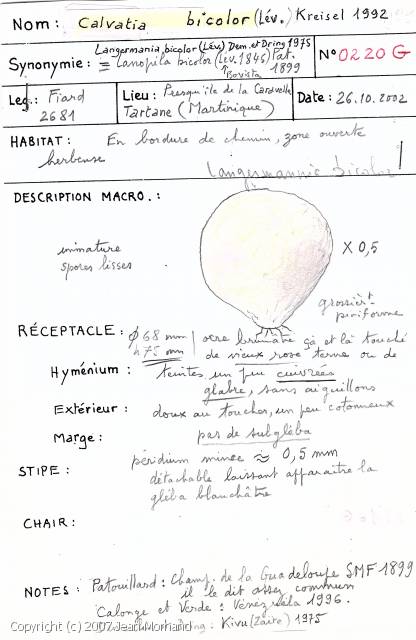 Nom : Calvatia bicolor (Lév.) Kreisel 1992
Langermania bicolor (Lév.) Dem. et Dring 1975
Synonymie : = Lanopila bicolor (Lév. 1846) Pat. 1899
Bovista
N° 0220 G
Leg. : Fiard 2681
Lieu : Presqu'île de la Caravelle
Tartane (Martinique)
Date : 26.10.2002
HABITAT : En bordure de chemin, zone ouverte
herbeuse
Langermannia bicolor
DESCRIPTION MACRO. :
immature
spores lisses
X 0,5
grossièrt
piriforme
RÉCEPTACLE : φ 68 mm ocre brunâtre çà et là touché
h 75 mm de vieux rose terne ou de
Hyménium : teintes un peu cuivrées
glabre, sans aiguillons
Extérieur : doux au toucher, un peu cotonneux
Marge : pas de subgléba
péridium mince ≈ 0,5 mm
STIPE : détachable laissant apparaître la
gléba blanchâtre
CHAIR :
NOTES : Patouillard : Champ. de la Guadeloupe SMF 1899
il le dit assez commun
Calonge et Verde : Vénézuéla 1996.
Dring : Kivu (Zaïre) 1975
Copyright (c) 2007 Jean Mornand